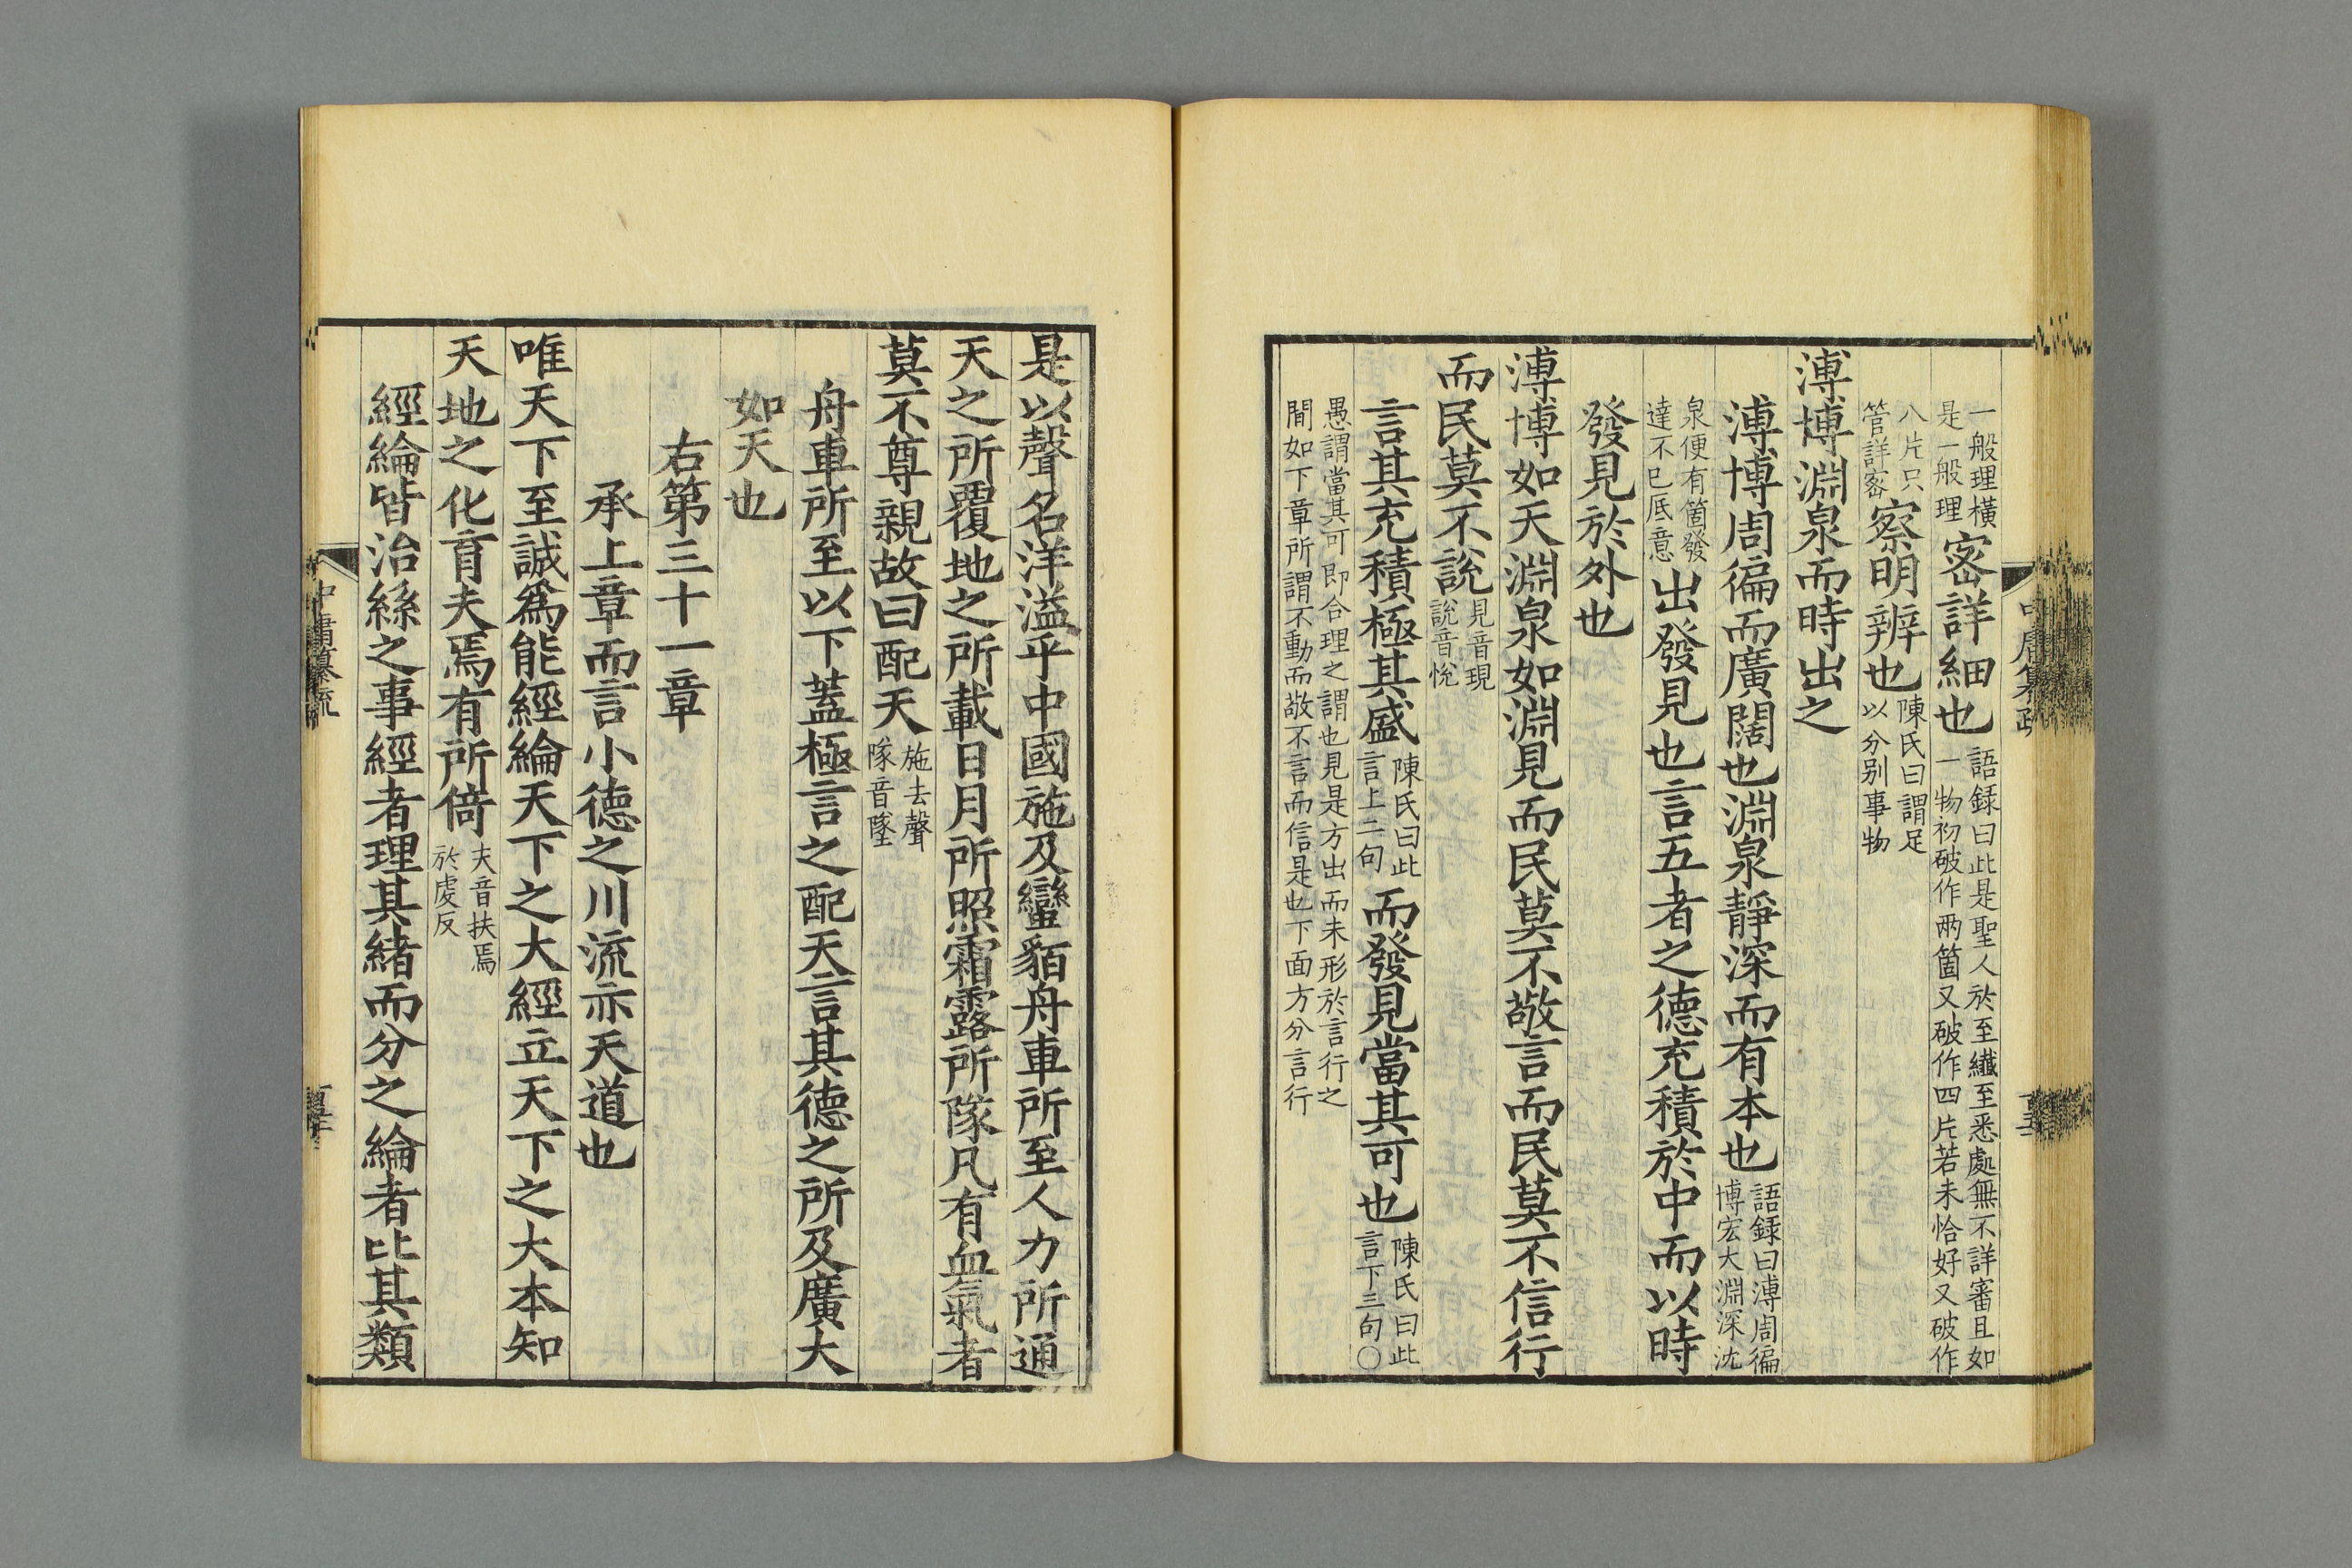 一般理橫是一般理密詳細也語録曰此是聖人於至纎至悉處無不詳審且如一物初破作兩箇又破作四片若未恰好又破作
八片只管詳密察明辨也陳氏曰謂足以分别事物
溥博淵泉而時出之
溥博周徧而廣闊也淵泉靜深而有本也語録曰溥周徧博宏大淵深沈
泉便有箇發達不已厎意出發見也言五者之德充積於中而以時
發見於外也
溥博如天淵泉如淵見而民莫不敬言而民莫不信行
而民莫不說見音現說音悅
言其充積極其盛陳氏曰此言上二句而發見當其可也陳氏曰此言下三句○
愚謂當其可即合理之謂也見是方出而未形於言行之間如下章所謂不動而敬不言而信是也下面方分言行
是以聲名洋溢乎中國施及蠻貊舟車所至人力所通
天之所覆地之所載日月所照霜露所隊凡有血氣者
莫不尊親故曰配天施去聲隊音墜
舟車所至以下蓋極言之配天言其德之所及廣大
如天也
右第三十一章
承上章而言小德之川流亦天道也
唯天下至誠爲能經綸天下之大經立天下之大本知
天地之化育夫焉有所倚夫音扶焉於虔反
經綸皆治絲之事經者理其緒而分之綸者比其類
中庸纂疏